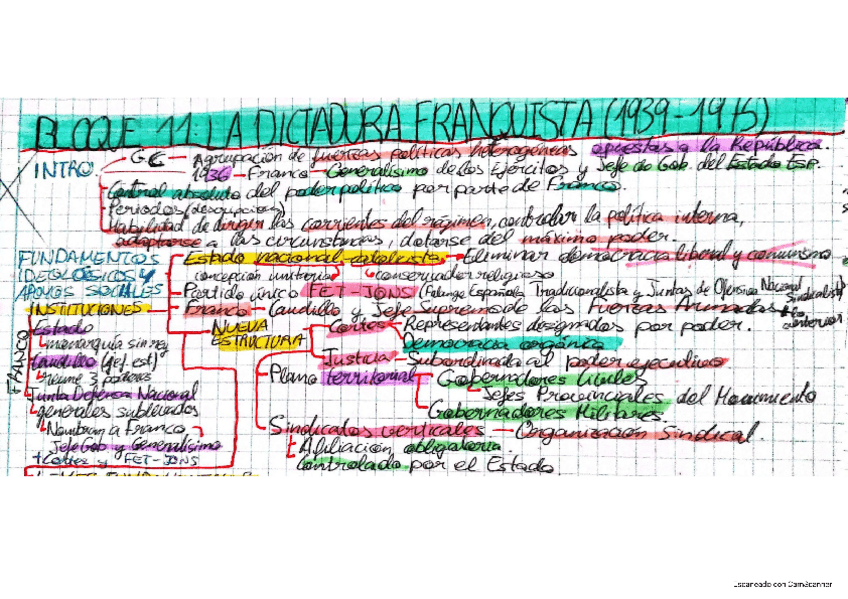 BLOQUE 11: LA DICTADURA FRANQUISTA (1939-1975)
INTRO.
GC — Agrupación de fuerzas políticas heterogéneas opuestas a la República.
1936 — Franco — Generalísimo de los Ejércitos y Jefe de Gob. del Estado Esp.
Control absoluto del poder político por parte de Franco.
Periodos (descripción)
Habilidad de dirigir las corrientes del régimen, controlar la política interna,
adaptarse a las circunstancias, dotarse del máximo poder.
FUNDAMENTOS
IDEOLÓGICOS Y
APOYOS SOCIALES
Estado nacional-catolicista → Eliminar democracia liberal y comunismo
concepción unitaria
conservador religioso
Partido único FET-JONS (Falange Española Tradicionalista y Juntas de Ofensiva Nacional
Sindicalista)
INSTITUCIONES
Franco — Caudillo y Jefe Supremo de las Fuerzas Armadas + lo
anterior
FRANCO
Estado
monarquía sin rey
Caudillo (jef. est)
reúne 3 poderes
Junta Defensa Nacional
generales sublevados
Nombran a Franco
Jefe Gob y Generalísimo
+ Cortes y FET-JONS
NUEVA
ESTRUCTURA
Cortes — Representantes designados por poder.
Democracia orgánica
Justicia — Subordinada al poder ejecutivo
Plano territorial
Gobernadores Civiles
Jefes Provinciales del Movimiento
Gobernadores Militares.
Sindicatos verticales — Organización Sindical.
Afiliación obligatoria.
Controlado por el Estado
Escaneado con CamScanner